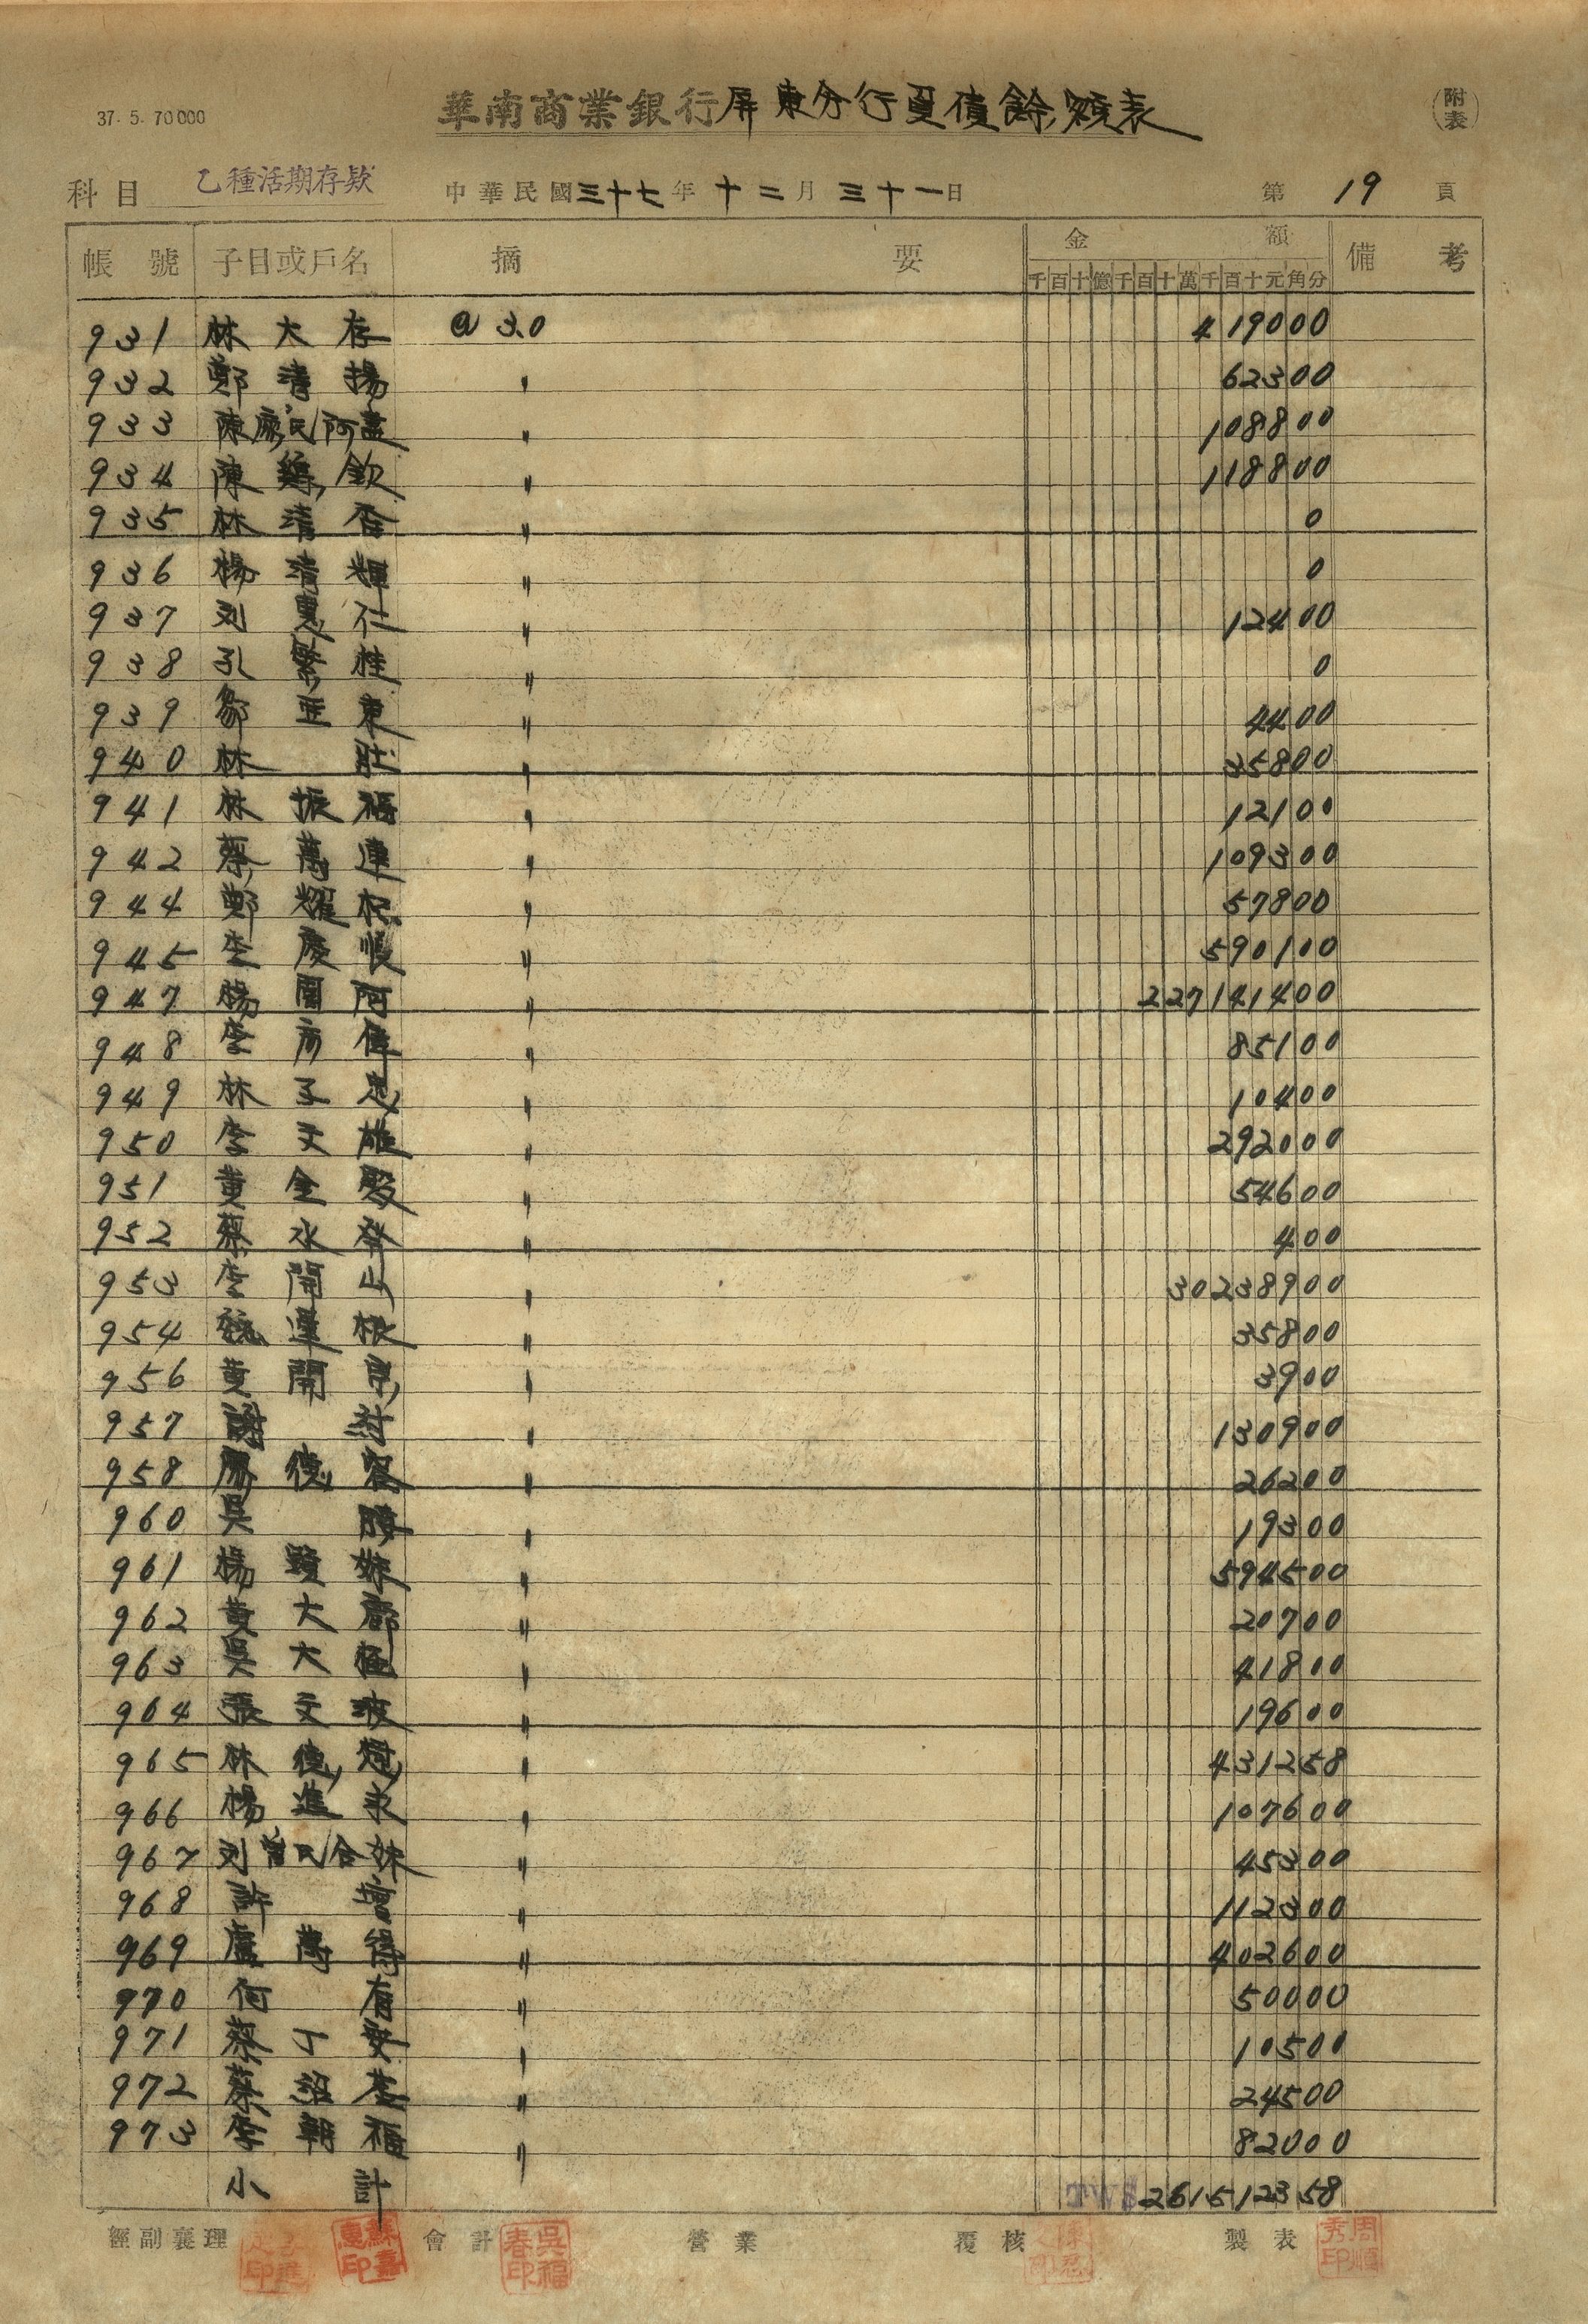 37. 5. 70000
華南商業銀行屏東分行負債餘額表
(附表)
科目 乙種活期存款 中華民國三十七年十二月三十一日 第 19 頁
帳號 子目或戶名 摘要 金額 備考
千百十億千百十萬千百十元角分
931 林大存 @ 3.0 419000
932 鄭清揚 〃 62300
933 陳廖氏阿盡 〃 108800
934 陳 欽 〃 118800
935 林清香 〃 0
936 楊清輝 〃 0
937 刘惠仁 〃 12400
938 孔繁桂 〃 0
939 鄒亚東 〃 4400
940 林壯 〃 35800
941 林振福 〃 12100
942 蔡萬連 〃 109300
944 鄭耀 〃 57800
945 李慶 〃 590100
947 楊 阿 〃 227141400
948 李 偉 〃 85100
949 林子忠 〃 10400
950 李天雄 〃 292000
951 黃金殿 〃 54600
952 蔡水發 〃 400
953 李開山 〃 30238900
954 連根 〃 35800
956 黃開 〃 3900
957 謝 〃 130900
958 德 〃 26200
960 吳 〃 19300
961 楊 妹 〃 594500
962 黃大 〃 20700
963 吳大 〃 41800
964 張文波 〃 19600
965 林德 〃 431258
966 楊進永 〃 107600
967 刘曾氏合妹 〃 45300
968 許 〃 112300
969 盧萬得 〃 402600
970 何有 〃 50000
971 蔡丁安 〃 10500
972 蔡 〃 24500
973 李朝福 〃 82000
小計 TW$ 261512358
經副襄理 會計 吳福春印 營業 覆核 製表 周順秀印